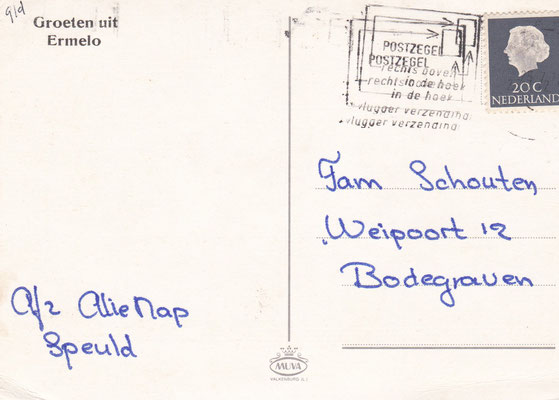 gld
Groeten uit
Ermelo
POSTZEGEL
POSTZEGEL
rechts boven
rechts boven
in de hoek
in de hoek
vlugger verzending
vlugger verzending
20 C
NEDERLAND
Fam Schouten
Weipoort 12
Bodegraven
A/z Alie Map
Speuld
MUVA
VALKENBURG (L.)